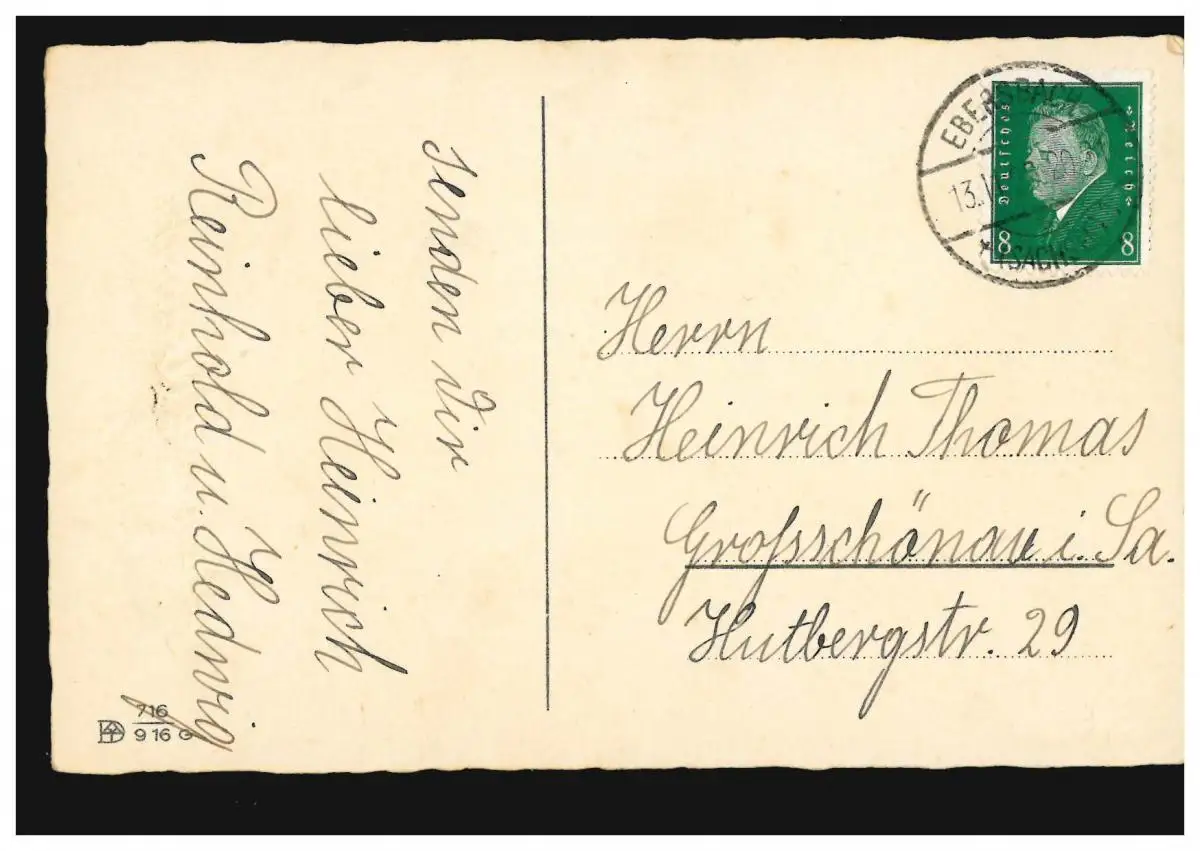 senden Dir
lieber Heinrich
Reinhold u. Hedwig
716
9 16 G
EBERSBACH
13.
(SACHS
Deutsches Reich
8 8
Herrn
Heinrich Thomas
Grossschönau i. Sa.
Hutbergstr. 29